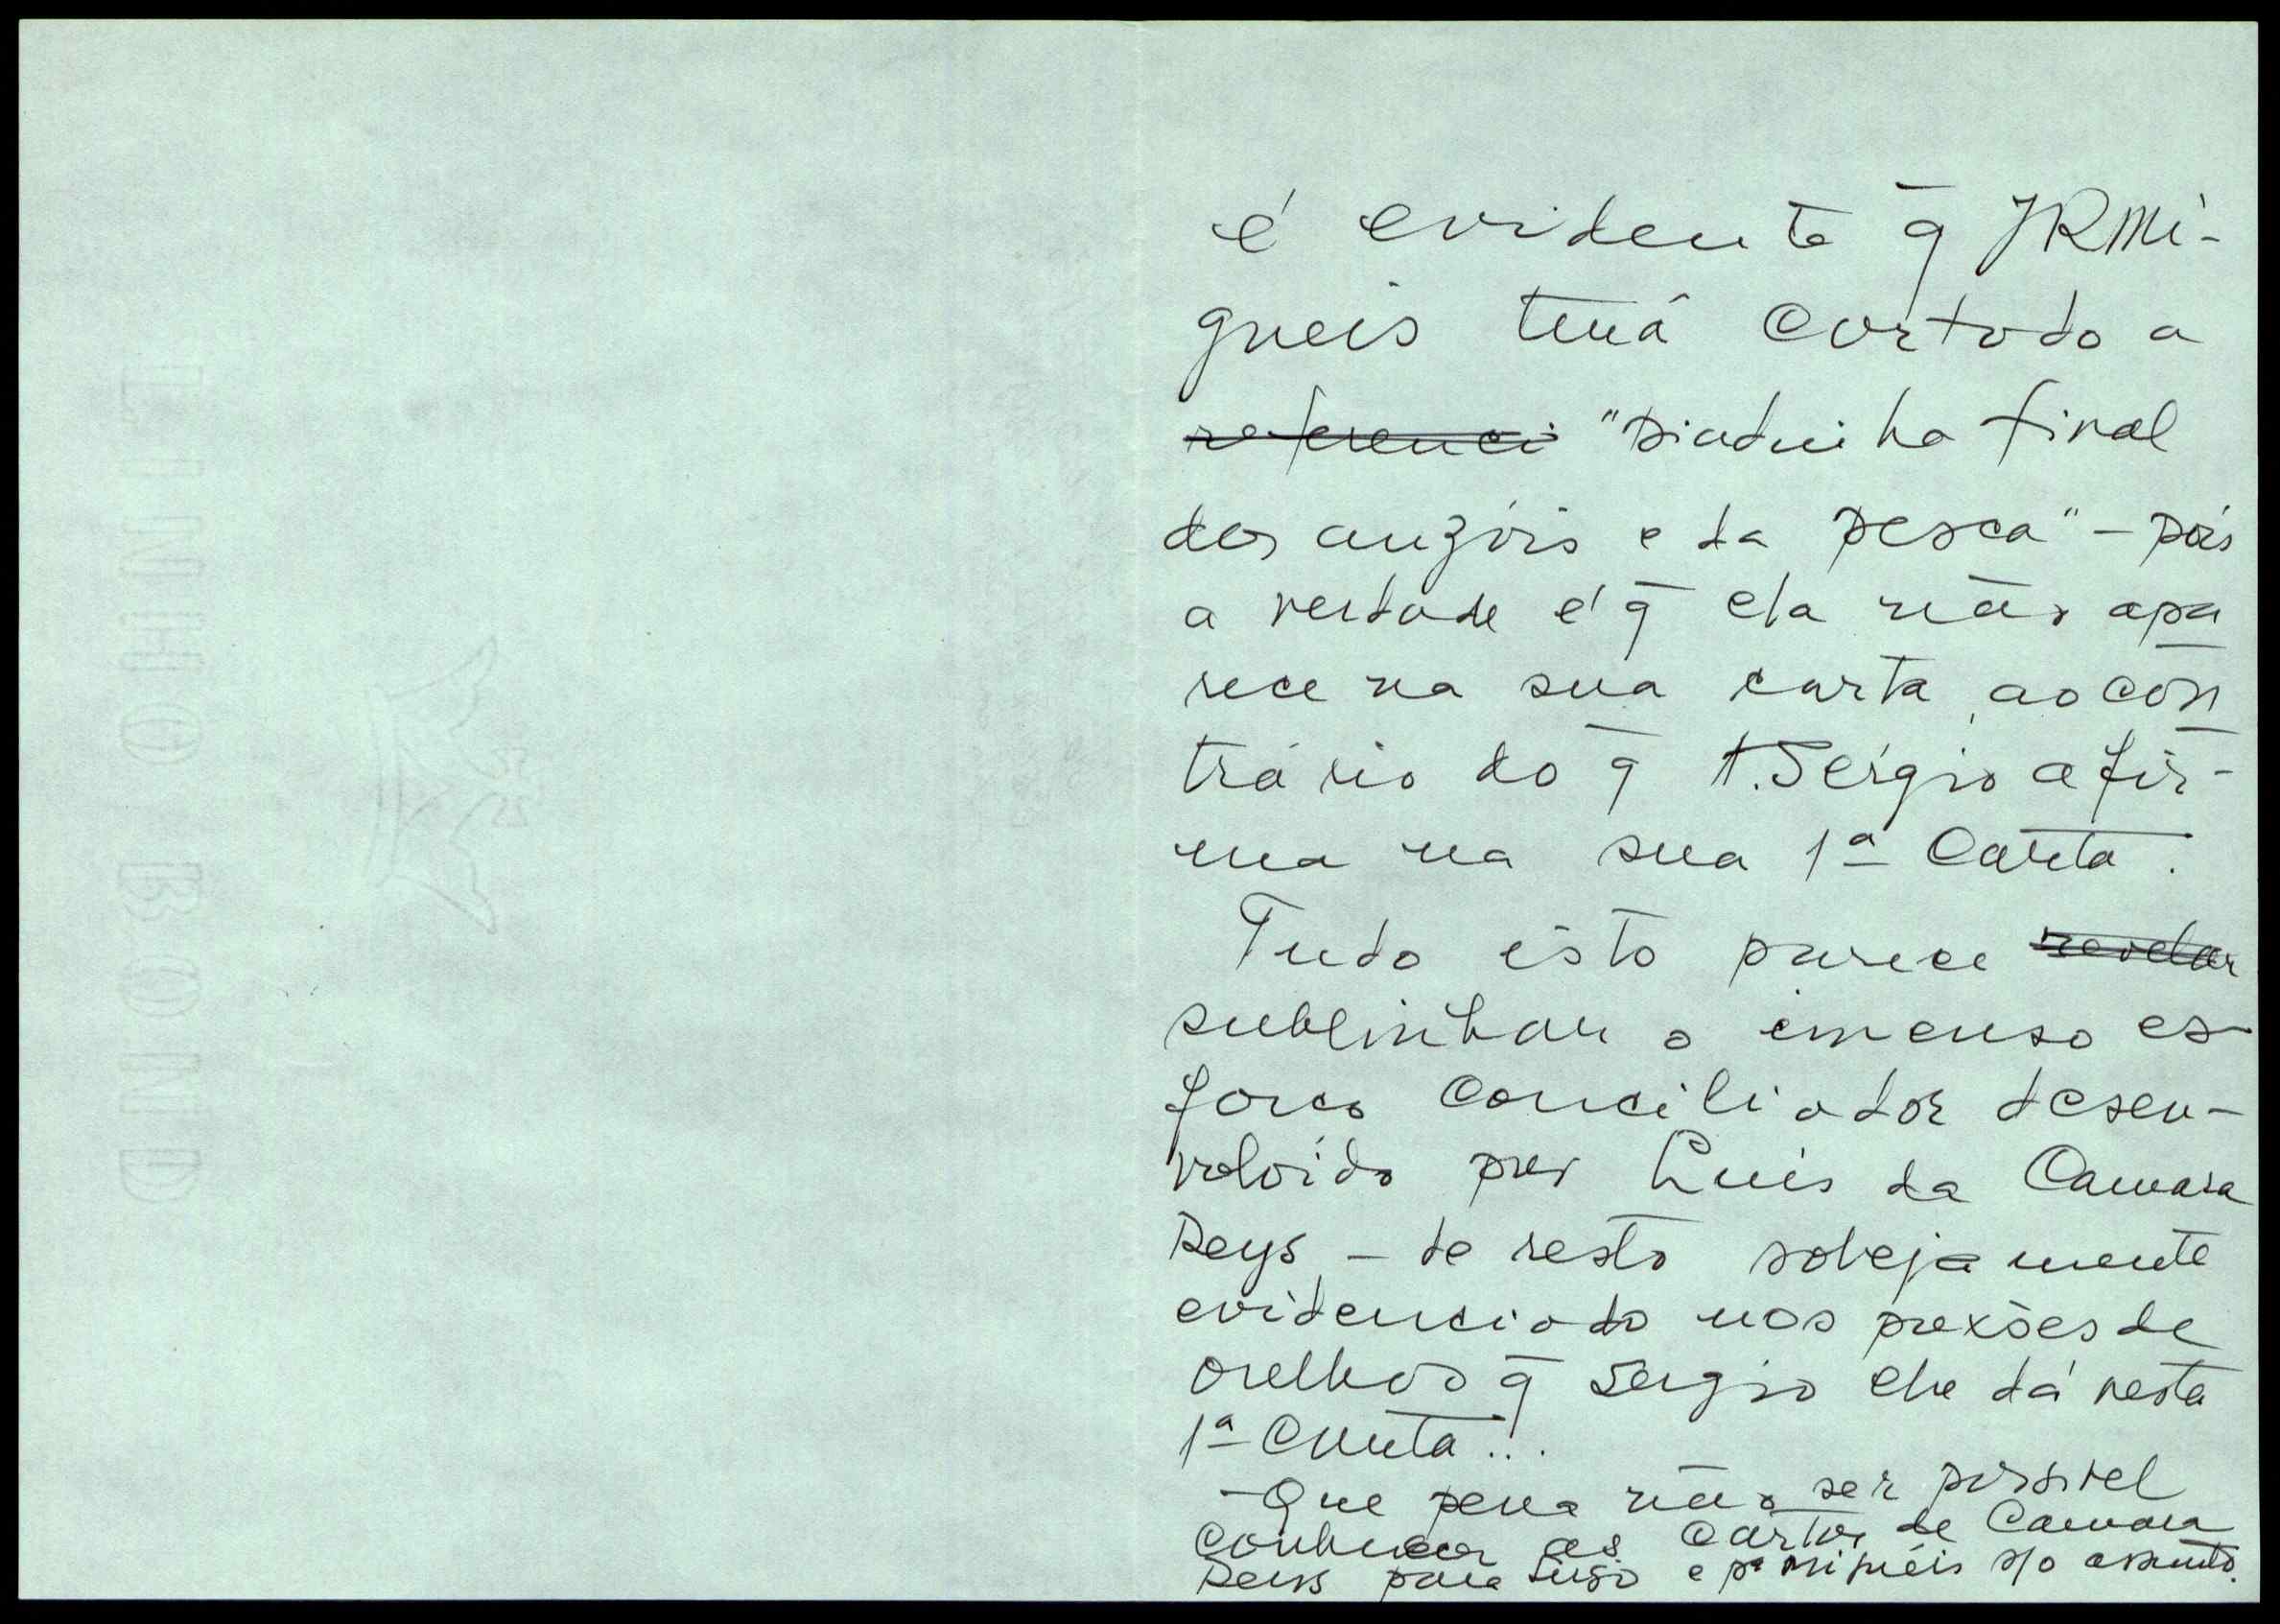 é evidente q̄ JRMi-
gueis terá cortado a
referenci "piadinha final
dos anzóis e da pesca" – pois
a verdade é q̄ ela não apa
rece na sua carta, ao con
trário do q̄ A. Sérgio afir-
ma na sua 1ª Carta.
Tudo isto parece revelar
sublinhar o imenso es-
forço conciliador desen-
volvido por Luis da Camara
Reys, – de resto sobejamente
evidenciado nos puxões de
orelhas q̄ Sergio lhe dá nesta
1ª Carta...
– Que pena não ser possivel
conhecer as cartas de Camara
Reys para Sergio e pª Miguéis s/o assunto.
LINHO BOND